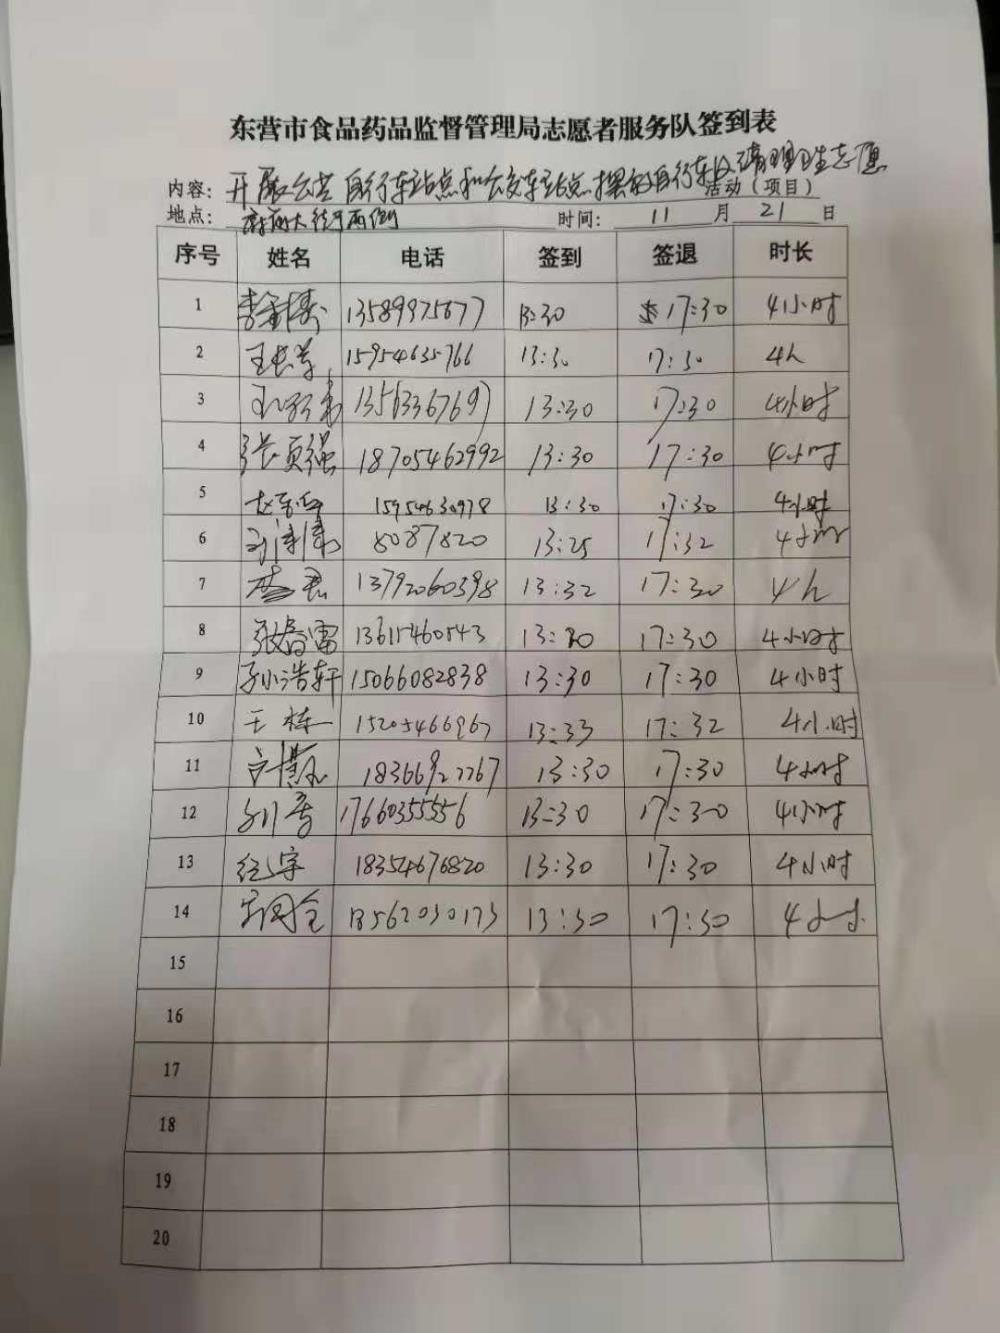 东营市食品药品监督管理局志愿者服务队签到表
内容：开展公共自行车站点和公交车站点摆放自行车及清理卫生志愿活动（项目）
地点：府前大街两侧 时间： 11 月 21 日
序号 姓名 电话 签到 签退 时长
1 13589975677 13:30 17:30 4小时
2 15954635766 13:30 17:30 4h
3 13563367697 13:30 17:30 4小时
4 张贡强 18705462992 13:30 17:30 4小时
5 15954630978 13:30 17:30 4小时
6 8087820 13:25 17:32 4小时
7 13792060398 13:32 17:30 4h
8 张春雷 13615460543 13:30 17:30 4小时
9 孙浩轩 15066082838 13:30 17:30 4小时
10 王栋 15205466967 13:33 17:32 4小时
11 18366927767 13:30 17:30 4小时
12 17660355556 13:30 17:30 4小时
13 纪宇 18354676820 13:30 17:30 4小时
14 13562030173 13:30 17:30 4小时
15
16
17
18
19
20